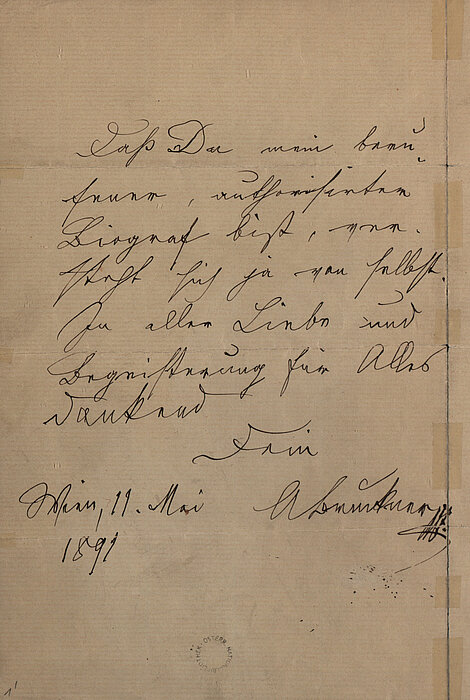 Daß Du mein beru-
fener, authorisirter
Biograf bist, ver-
steht sich ja von selbst.
In aller Liebe und
Begeisterung für Alles
dankend
Dein
Wien, 11. Mai
ABruckner
1891